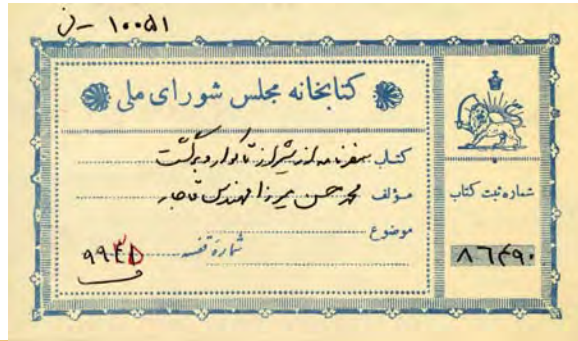 ۱۰۰۵۱ - ف
کتابخانه مجلس شورای ملی
کتاب سفرنامه از شیراز تا گوار و برگشت
مؤلف محمد حسن میرزا مهندس قاجار
موضوع
شمارهٔ قفسه ۹۹۴۵
ف
شماره ثبت کتاب
۸۶۴۹۰